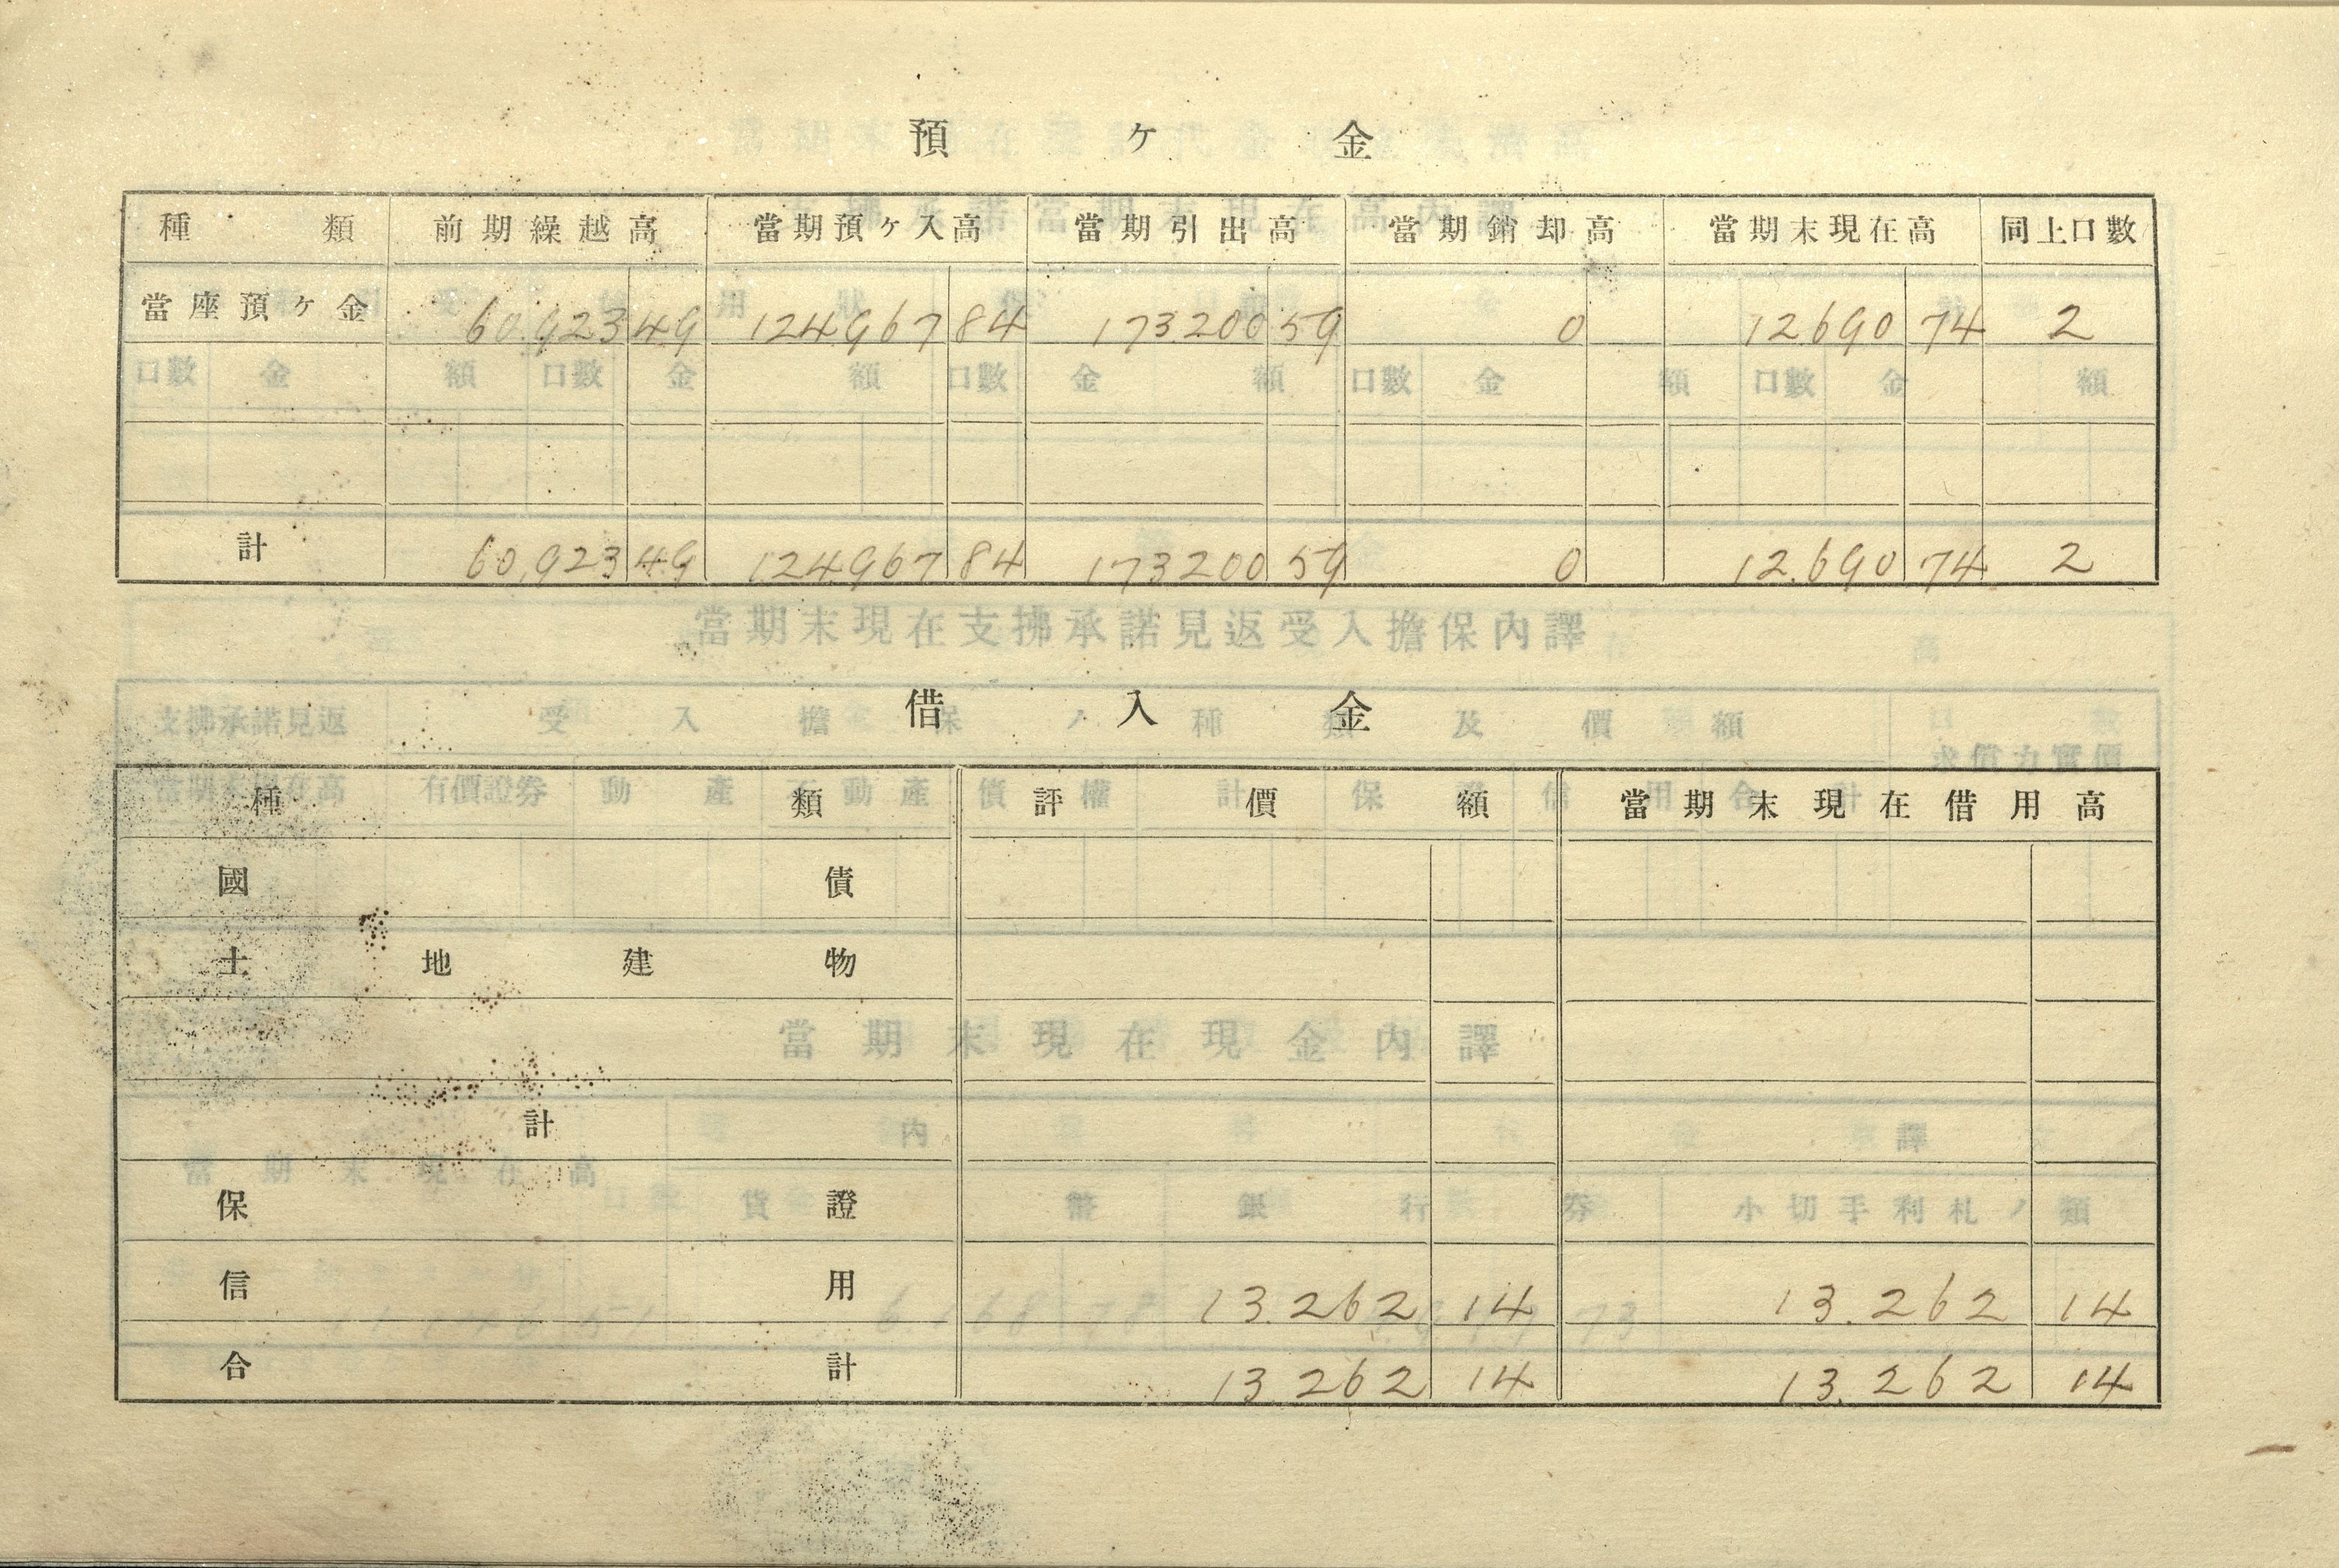 預ケ金
種類 前期繰越高 當期預ケ入高 當期引出高 當期銷却高 當期末現在高 同上口數
當座預ケ金 60,923 49 124,967 84 173,200 59 0 12,690 74 2
計 60,923 49 124,967 84 173,200 59 0 12,690 74 2
借入金
種類 評價額 當期末現在借用高
國債
土地建物
計
保證
信用 13.262 14 13.262 14
合計 13.262 14 13.262 14